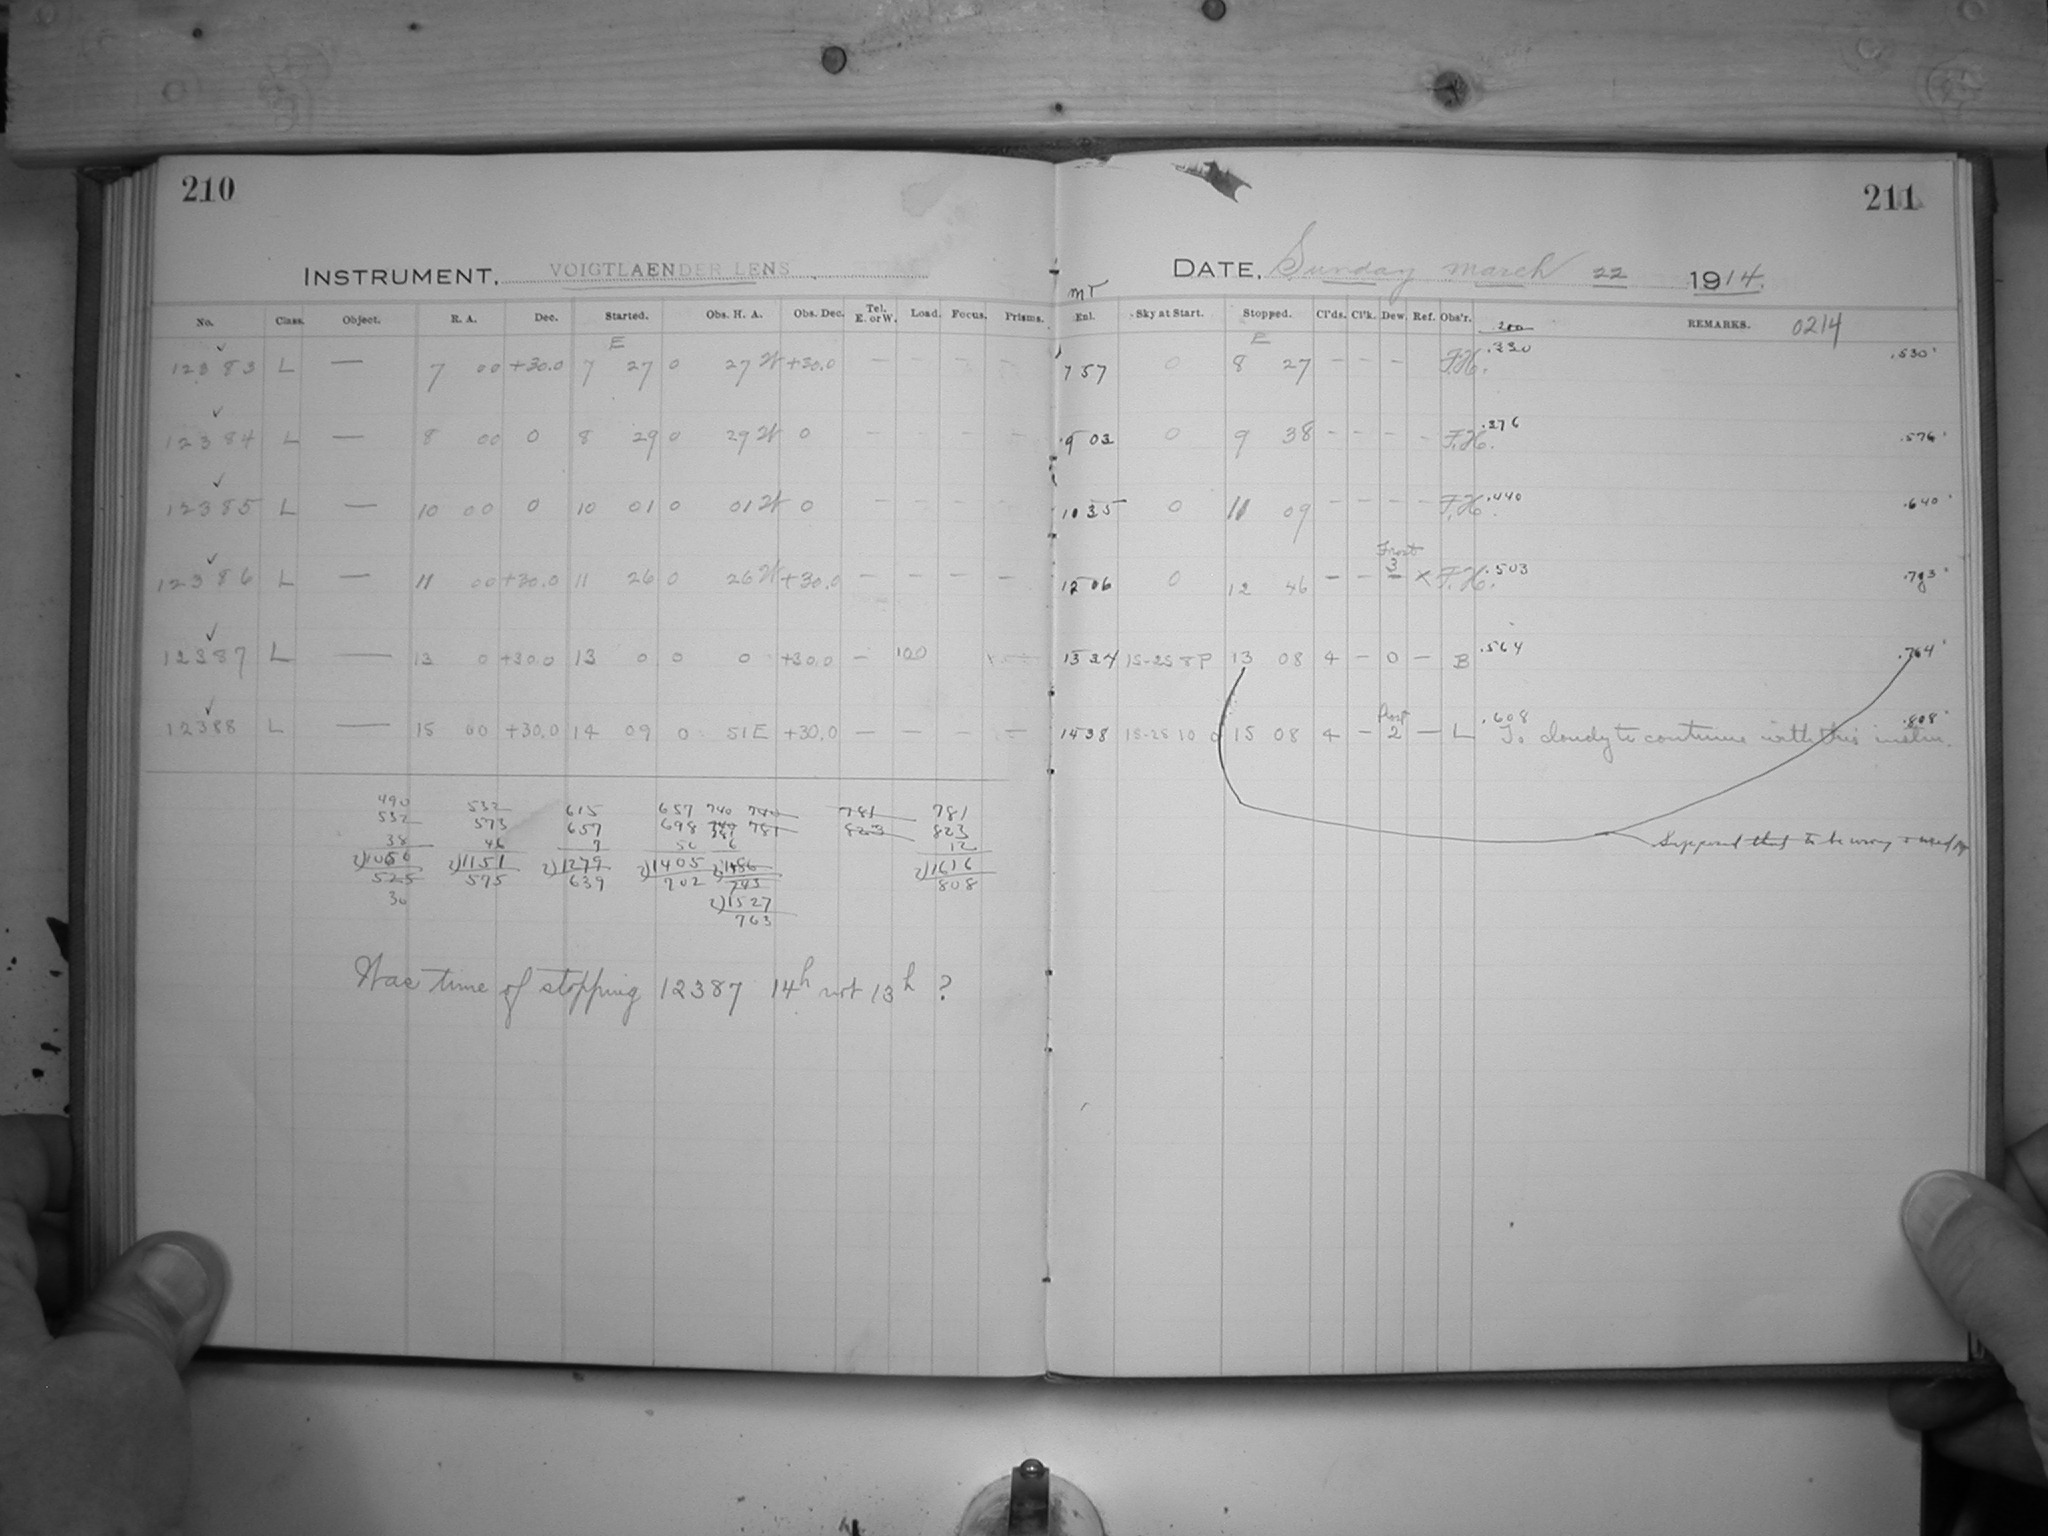 210
211
INSTRUMENT, VOIGTLAENDER LENS
DATE, Sunday March 22 1914.
No. Class. Object. R. A. Dec. Started. Obs. H. A. Obs. Dec. Tel. E. or W. Load. Focus. Prisms. MT Enl. Sky at Start. Stopped. Cl'ds. Cl'k. Dew. Ref. Obs'r. REMARKS. 0214
E E
12383 L — 7 00 +30.0 7 27 0 27 W +30.0 — — — — 7 57 0 8 27 — — — F.H. .330 .530
12384 L — 8 00 0 8 29 0 29 W 0 — — — — 9 03 0 9 38 — — — — F.H. .376 .576
12385 L — 10 00 0 10 01 0 01 W 0 — — — — 10 35 0 11 09 — — — — F.H. .440 .640
Frost
12386 L — 11 00 +30.0 11 26 0 26 W +30.0 — — — — 12 06 0 12 46 — — 3 × F.H. .503
12387 L — 13 0 +30.0 13 0 0 0 +30.0 — 100 13 34 15-25 8 P 13 08 4 — 0 — B .564 .764
Frost
12388 L — 15 00 +30.0 14 09 0 51 E +30.0 — — — — 14 38 15 08 4 — 2 — L .608 .808
To cloudy to continue with this instru.
490 532 615 657 740 740 781 781
532 573 657 698 781 823 823
38 46 7 50 6 12
2)1151 2)1279 2)1405 2)1486 2)1616
525 575 639 702 743 808
30 2)1527
763
Supposed that to be wrong & used
Was time of stopping 12387 14h not 13h ?